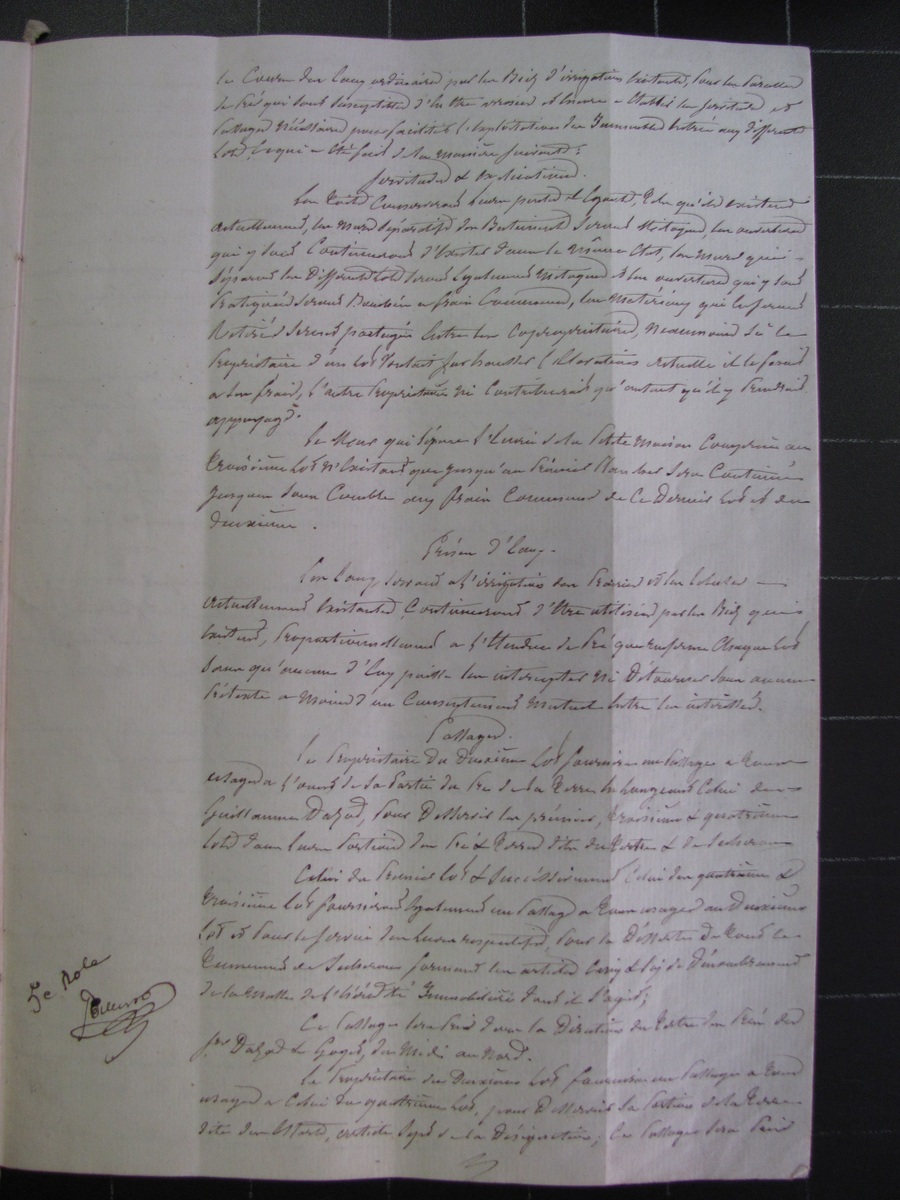 le Cours des Eaux ordinaires par les Biez d'irrigation Existants, sur les Parcelles
de Pré qui sont susceptibles d'Etre arrosées et Encore a Etablir les servitudes et
Passages Nécéssaires pour faciliter l'exploitation des Immeubles Entrés aux différents
Lots, Ce qui a Eté fait de la manière suivante:
Servitudes &
Les Toits Conserveront leurs pentes & Egouts, Tels qu'ils existent
actuellement, les Murs séparatifs des Batiments seront Mitoyens, les ouvertures
qui y sont Continueront d'Exister dans le Même Etat, les Murs qui
séparent les Différents Lots seront Egalement Mitoyens et les ouvertures qui y sont
Pratiquées seront Bouchées a frais Communs, les Matériaux qui les
seront partagés Entre les Copropriétaires, Neanmoins si le
Propriétaire d'un Lot Voulait surhausser l'élévation actuelle il le ferait
a ses frais, l'autre Propriétaire n'y Contribuerait qu'autant qu'il y prendrait
appuyage.
Le Mur qui sépare l'Ecurie de la Petite Maison Comprise au
Troisième Lot N'Existant que jusqu'au Prémier Plancher sera Continué
jusques sous Comble aux frais Communs de Ce Dernier Lot et du
deuxième.
Prises d'Eau.
Les Eaux servant a l'irrigation des Prairies et les Ecluses
actuellement Existantes Continueront d'Etre utilisées par les Biez qui
Existent, Proportionnellement a l'Etendue de Pré que renferme Chaque Lot
sans qu'aucun d'Eux puisse les intercepter Ni Détourner sous aucun
Prétexte a Moins d'un Consentement Mutuel Entre les intéressés.
Passages.
Le Propriétaire du Deuxième Lot fournira un Passage a Tous
usages a l'ouest de la Partie du Pré de la Terre Celui de
Guillaume Dazod, pour Désservir les prémier, troisième & quatrième
Lots dans leurs Portions des Pré & Terres dites du & de
Celui du Prémier Lot & successivement Celui des quatrième &
troisième Lots fourniront Egalement un Passage a Tous usages au Deuxième
Lot et pour le service des leurs respectifs, pour la Désserte De Tous les
Tennements de formant les articles Cinq & Six de Dénombrement
de la Masse de l'hérédité Immobilière dont il s'agit;
Ce Passage sera Pris dans la Direction du des Prés des
Srs Dazod & du Midi au Nord.
Le Propriétaire du Deuxième Lot fournira un Passage a Tous
usages a Celui du quatrième Lot, pour Désservir la Portion de la Terre
dite article Sept de la Désignation; Ce Passage sera Pris
5e Role